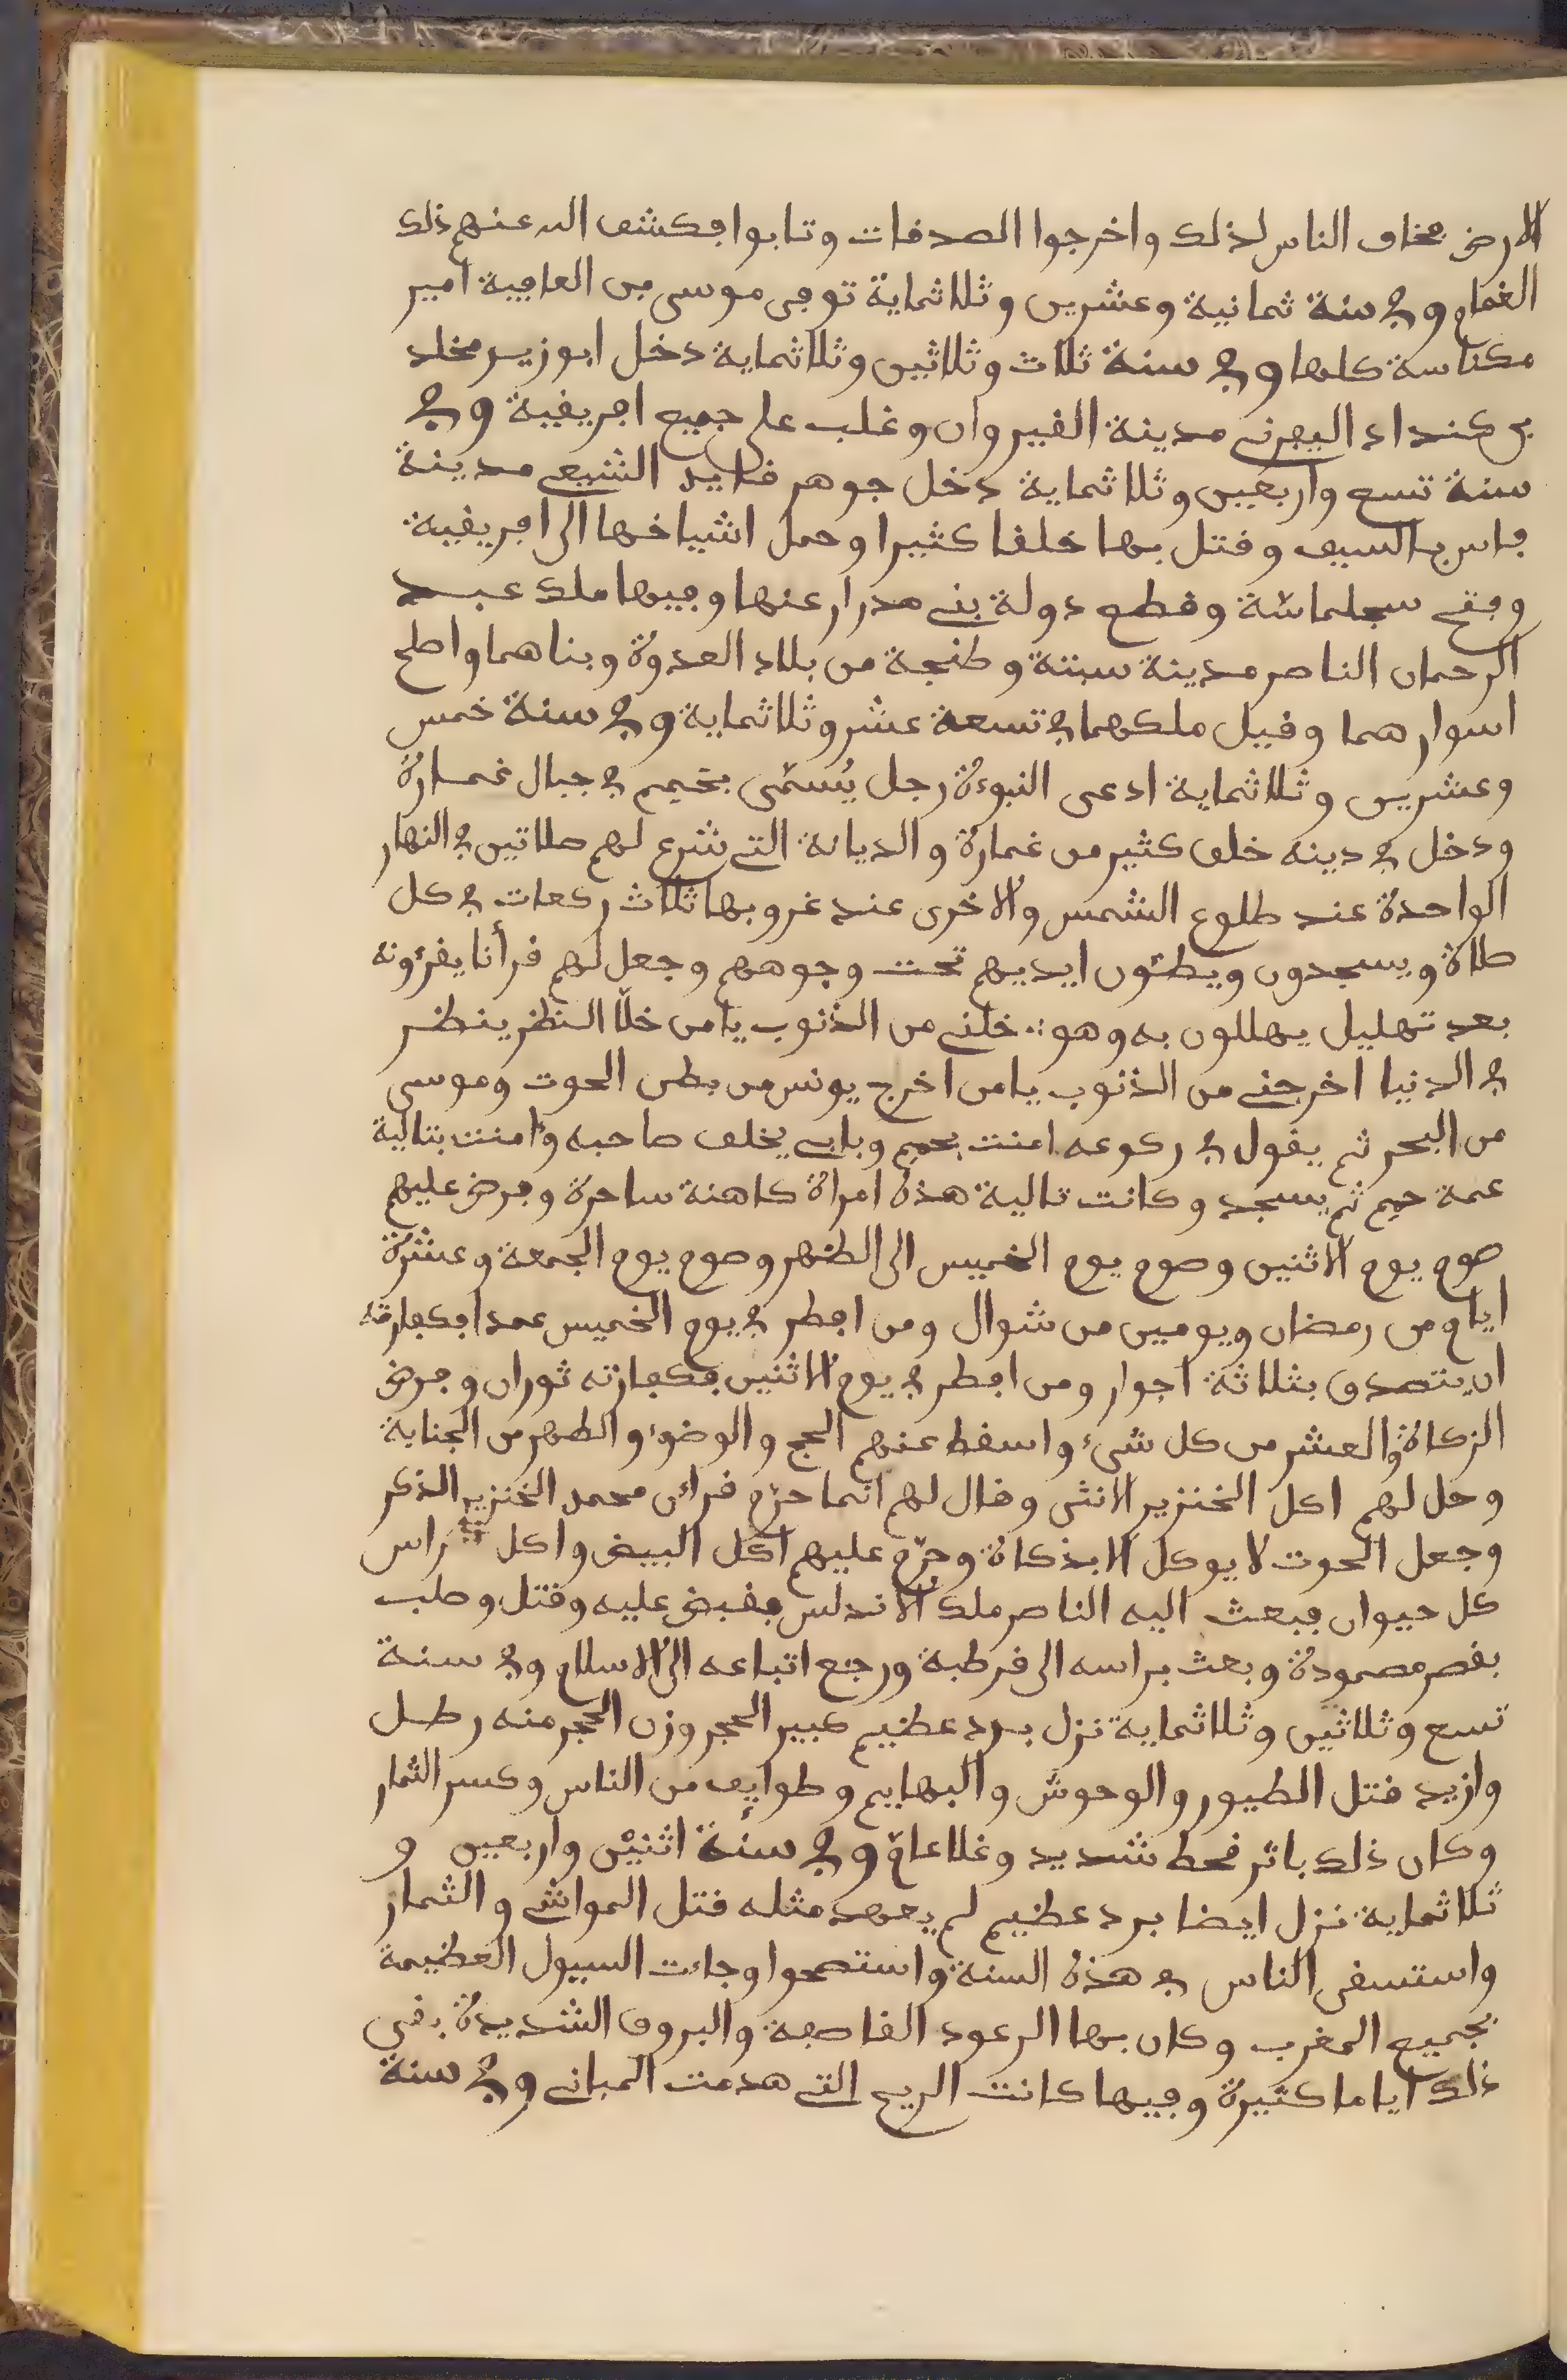 الارض فخاف الناس لذلك واخرجوا الصدقات وتابوا فكشف الله عنهم ذلك
الغمام وفي سنة ثمانية وعشرين وثلاثماية توفي موسى بن العافية امير
مكناسة كلها وفي سنة ثلاث وثلاثين وثلاثماية دخل ابو زيد مخلد
بن كنداد اليفرني مدينة القيروان وغلب على جميع افريقية وفي
سنة تسع واربعين وثلاثماية دخل جوهر قايد الشيعي مدينة
فاس بالسيف وقتل بها خلقا كثيرا وحمل اشياخها الى افريقية
وفتح سجلماسة وقطع دولة بني مدرار عنها وفيها ملك عبد
الرحمان الناصر مدينة سبتة وطنجة من بلاد العدوة وبناهما واصلح
اسوارهما وقيل ملكهما في تسعة عشر وثلاثماية وفي سنة خمس
وعشرين وثلاثماية ادعى النبوءة رجل يُسمّى بحميم في جبال غمارة
ودخل في دينه خلق كثير من غمارة والديانة التي شرع لهم صلاتين في النهار
الواحدة عند طلوع الشمس والاخرى عند غروبها ثلاث ركعات في كل
صلاة ويسجدون ويطئون ايديهم تحت وجوههم وجعل لهم قرأنا يقرءونه
بعد تهليل يهللون به وهو خلني من الذنوب يا من خلّا النظر ينظر
في الدنيا اخرجني من الذنوب يا من اخرج يونس من بطن الحوت وموسى
من البحر ثم يقول في ركوعه امنت بحميم وبابي يخلف صاحبه وءامنت بتالية
عمة حميم ثم يسجد وكانت تالية هذه امراة كاهنة ساحرة وفرض عليهم
صوم يوم الاثنين وصوم يوم الخميس الى الظهر وصوم يوم الجمعة وعشرة
ايام من رمضان ويومين من شوال ومن افطر في يوم الخميس عمدا فكفارته
ان يتصدق بثلاثة اجوار ومن افطر في يوم الاثنين فكفارته ثوران وفرض
الزكاة والعشر من كل شيء واسقط عنهم الحج والوضوء والطهر من الجنابة
وحل لهم اكل الخنزير الانثى وقال لهم انما حرّم قراءن محمد الخنزير الذكر
وجعل الحوت لا يوكل الا بذكاة وحرّم عليهم اكل البيض واكل راس
كل حيوان فبعث اليه الناصر ملك الاندلس فقبض عليه وقتل وصلب
بقصر مصمودة وبعث براسه الى قرطبة ورجع اتباعه الى الاسلام وفي سنة
تسع وثلاثين وثلاثماية نزل برد عظيم كبير الحجر وزن الحجر منه رطل
وازيد قتل الطيور والوحوش والبهايم وطوايف من الناس وكسر الثمار
وكان ذلك باثر قحط شديد وغلا عام وفي سنة اثنين واربعين و
ثلاثماية نزل ايضا برد عظيم لم يعهد مثله قتل المواشي والثمار
واستسقى الناس في هذه السنة واستصحوا وجاءت السيول العظيمة
بجميع المغرب وكان بها الرعود القاصفة والبروق الشديدة بقي
ذلك اياما كثيرة وفيها كانت الريح التي هدمت المباني وفي سنة